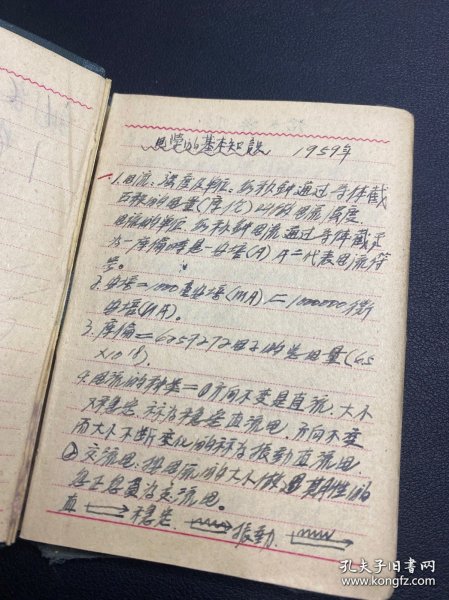 电学的基本知识 1959年
1.电流:强度及单位:每秒钟通过导体截
面积的电量(库伦)叫的电流强度.
电流的单位,每秒钟电流通过导体截面
为一库倫时是一安培(A) A=代表电流符
号。
2.安培=1000毫安培(MA)=1000000微
安培(UA)。
3.库倫=
×10 18).
4.电流的种类=①方向不变是直流,大小
又稳定,称为稳定直流电.方向不变
而大小不断变化的称为振动直流电
②交流电:指电流的大小做周期性的
变为交流电。
直 稳定 振动
孔夫子旧书网
www.kongfz.com